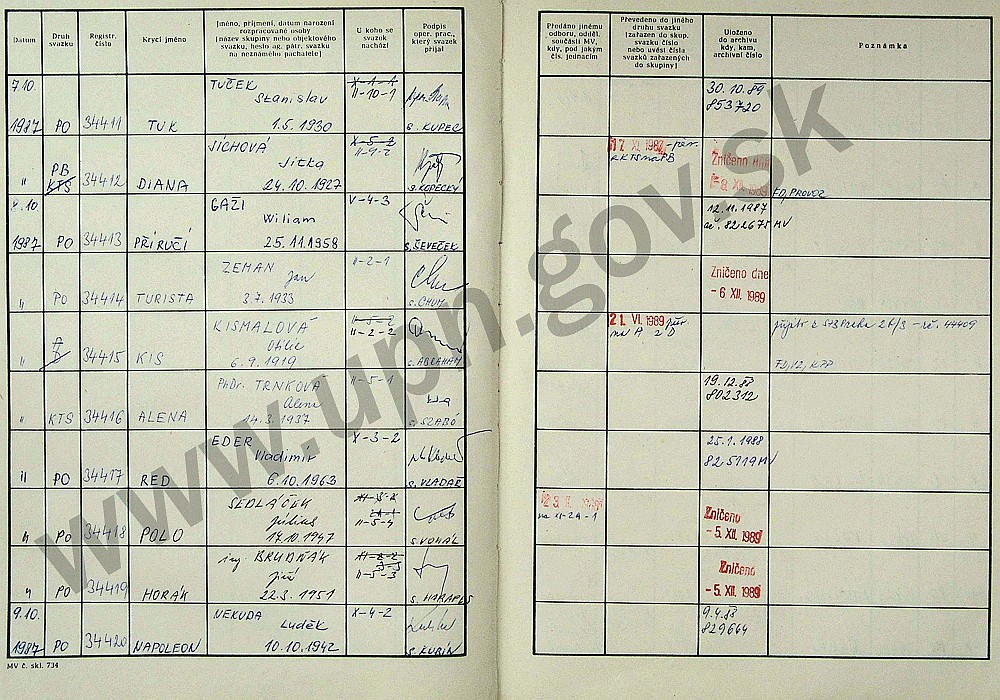 Datum
Druh
svazku
Registr.
číslo
Krycí jméno
Jméno, příjmení, datum narození
rozpracované osoby
[název skupiny nebo objektového
svazku, heslo ag. pátr. svazku
na neznámého pachatele]
U koho se
svazek
nachází
Podpis
oper. prac.,
který svazek
přijal
Předáno jinému
odboru, odděl.
součásti MV,
kdy, pod jakým
čís. jednacím
Převedeno do jiného
druhu svazku
[zařazen do skup.
svazku číslo
nebo uvést čísla
svazků zařazených
do skupiny]
Uloženo
do archivu
kdy, kam,
archivní číslo
Poznámka
7.10. TUČEK X-1-1 30.10.89
Stanislav II-10-1 853720
1987 PO 34411 TUK 1.5.1930 s. KUPEC
JÍCHOVÁ X-5-2 17. XI. 1987
PB Jitka II-9-2 z KTS na PB Zničeno dne
" KTS 34412 DIANA 24.10.1927 s. KOPECKÝ -8. XII. 1989 FD, PROVOZ
8.10. GAŽI V-4-3 12.11.1987
Wiliam ač. 822675 MV
1987 PO 34413 PŘÍRUČÍ 25.11.1958 s. ŠEVEČEK
ZEMAN II-2-1 Zničeno dne
Jan - 6. XII. 1989
" PO 34414 TURISTA 3.7.1933 s. CHUM
KISMALOVÁ II-5-2 21. VI. 1989
A Otilie II-2-2 na A z D
" D 34415 KIS 6.9.1919 s. ABRAHAM
PhDr. TRNKOVÁ II-5-1 19.12.88
Alena 802312
" KTS 34416 ALENA 14.3.1937 s. SZABÓ
EDER X-3-2 25.1.1988
Vladimír 825119 MV
" PO 34417 RED 6.10.1963 s. VLADAŘ
SEDLÁČEK
Július II-5-4 na II-2A-1 Zničeno
" PO 34418 POLO 17.10.1947 - 5. XII. 1989
ing. BRUDŇÁK Zničeno
Jiří II-5-3 - 5. XII. 1989
" PO 34419 HORÁK 22.3.1951
9.10. NEKUDA X-4-2 9.4.88
Luděk 829664
1987 PO 34420 NAPOLEON 10.10.1942 s. KUBÍN
MV č. skl. 734
www.upn.gov.sk